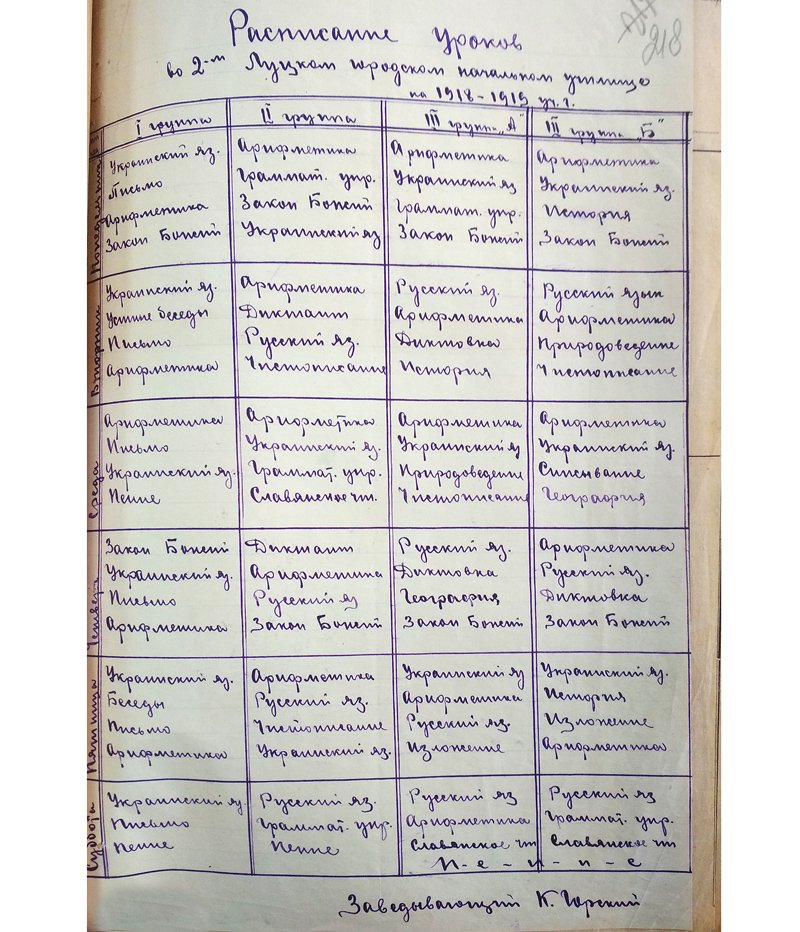 218
Расписание уроков
во 2-м Луцком городском начальном училище
на 1918-1919 уч. г.
I группа II группа III группа „А" III группа „Б"
Понедельник
Украинский яз. Арифметика Арифметика Арифметика
Письмо Граммат. упр. Украинский яз Украинский яз.
Арифметика Закон Божий Граммат. упр. История
Закон Божий Украинский яз Закон Божий Закон Божий
Вторник
Украинский яз. Арифметика Русский яз. Русский язык
Устные беседы Диктант Арифметика Арифметика
Письмо Русский яз. Диктовка Природоведение
Арифметика Чистописание История Чистописание
Среда
Арифметика Арифметика Арифметика Арифметика
Письмо Украинский яз. Украинский яз Украинский яз.
Украинский яз. Граммат. упр. Природоведение Списывание
Пение Славянское чт. Чистописание География
Четверг
Закон Божий Диктант Русский яз. Арифметика
Украинский яз. Арифметика Диктовка Русский яз.
Письмо Русский яз География Диктовка
Арифметика Закон Божий Закон Божий Закон Божий
Пятница
Украинский яз. Арифметика Украинский яз Украинский яз.
Беседы Русский яз. Арифметика История
Письмо Чистописание Русский яз. Изложение
Арифметика Украинский яз. Изложение Арифметика
Суббота
Украинский яз. Русский яз. Русский яз Русский яз
Письмо Граммат. упр. Арифметика Граммат. упр.
Пение Пение Славянское чт Славянское чт
П-е-н-и-е
Заведывающий К. Горский